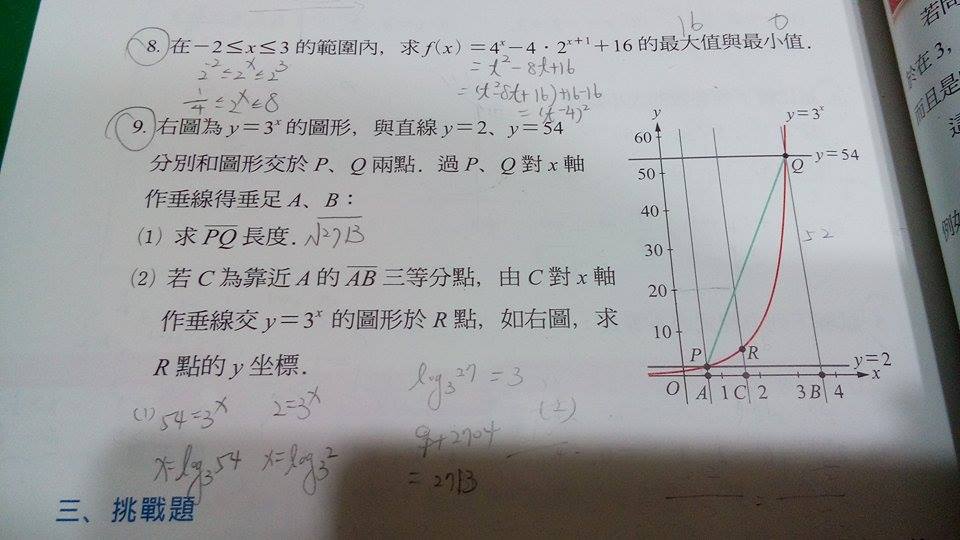 16 0
8. 在 -2 ≤ x ≤ 3 的範圍內，求 f(x) = 4ˣ - 4 · 2ˣ⁺¹ + 16 的最大值與最小值.
2⁻² ≤ 2ˣ ≤ 2³
= t² - 8t + 16
1/4 ≤ 2ˣ ≤ 8
= (t² - 8t + 16) + 16 - 16
= (t - 4)²
9. 右圖為 y = 3ˣ 的圖形，與直線 y = 2、y = 54
分別和圖形交於 P、Q 兩點. 過 P、Q 對 x 軸
作垂線得垂足 A、B：
(1) 求 PQ 長度. √2713
(2) 若 C 為靠近 A 的 AB 三等分點，由 C 對 x 軸
作垂線交 y = 3ˣ 的圖形於 R 點，如右圖，求
R 點的 y 坐標.
log₃27 = 3
(1) 54 = 3ˣ 2 = 3ˣ
x = log₃54 x = log₃2
9 + 2704
= 2713
(2)
三、挑戰題
y y = 3ˣ
y = 54
50 Q
40
52
30
20
10
P R
y = 2
x
O A 1 C 2 3 B 4
若問
於在 3，
而且是
這
例如